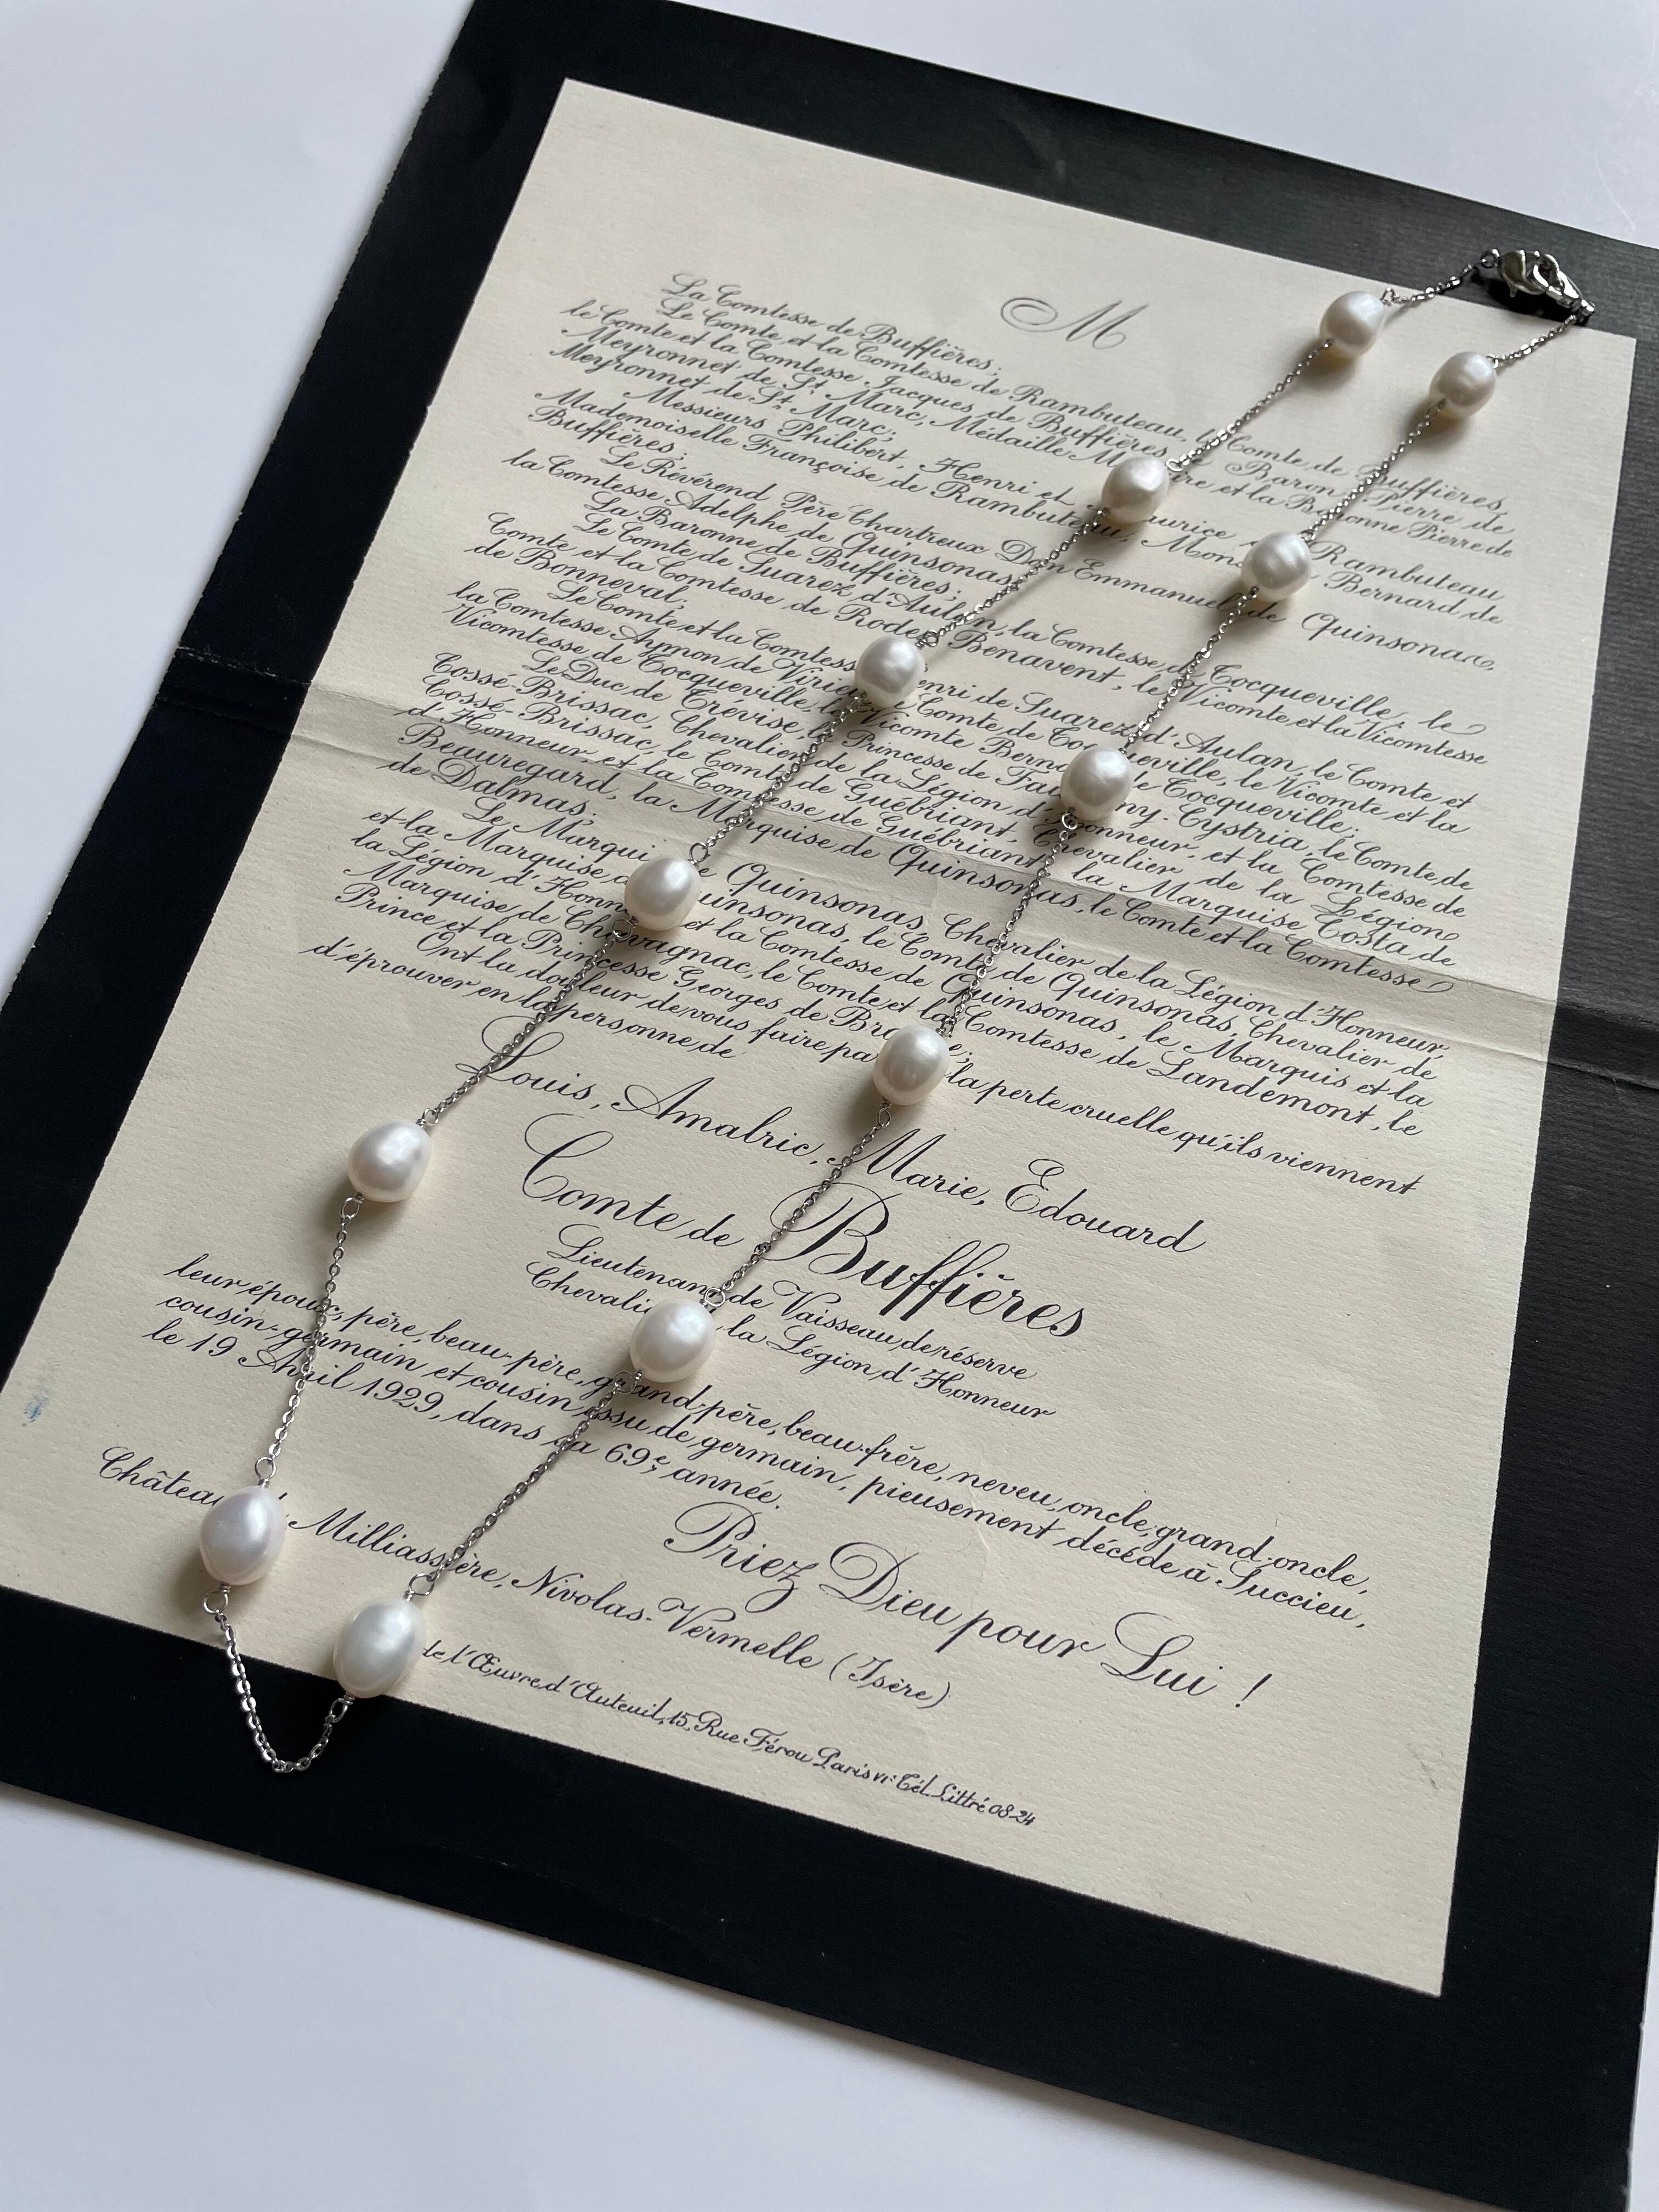 M
La Comtesse de Buffières;
Le Comte et la Comtesse de Rambuteau, le Comte de Buffières,
le Comte et la Comtesse Jacques de Buffières, le Baron Pierre de
Meyronnet de St Marc, Médaille M re et la Baronne Pierre de
Meyronnet de St Marc;
Messieurs Philibert, Henri et aurice de Rambuteau
Mademoiselle Françoise de Rambuteau, Mons Bernard de
Buffières;
Le Révérend Père Chartreux Dom Emmanuel de Quinsonas,
la Comtesse Adelphe de Quinsonas;
La Baronne de Buffières;
Le Comte de Suarez d'Aulan, la Comtesse de Tocqueville, le
Comte et la Comtesse de Rodez Benavent, le Vicomte et la Vicomtesse
de Bonneval;
Le Comte et la Comtesse enri de Suarez d'Aulan, le Comte et
la Comtesse Aymon de Virieu, le Comte de Tocqueville, le Vicomte et la
Vicomtesse de Tocqueville, le Vicomte Bernard de Tocqueville;
Le Duc de Trévise, la Princesse de Faucigny-Cystria, le Comte de
Cossé-Brissac, Chevalier de la Légion d'Honneur, et la Comtesse de
Cossé-Brissac, le Comte de Guébriant, Chevalier de la Légion
d'Honneur, et la Comtesse de Guébriant, la Marquise Costa de
Beauregard, la Marquise de Quinsonas, le Comte et la Comtesse
de Dalmas;
Le Marqui de Quinsonas, Chevalier de la Légion d'Honneur,
et la Marquise de Quinsonas, le Comte de Quinsonas, Chevalier de
la Légion d'Honn et la Comtesse de Quinsonas, le Marquis et la
Marquise de Chavagnac, le Comte et la Comtesse de Landemont, le
Prince et la Princesse Georges de Broglie;
Ont la douleur de vous faire pa la perte cruelle qu'ils viennent
d'éprouver en la personne de
Louis, Amalric, Marie, Edouard
Comte de Buffières
Lieutenant de Vaisseau de réserve
Chevalie la Légion d'Honneur
leur époux, père, beau-père, grand-père, beau-frère, neveu, oncle, grand-oncle,
cousin-germain et cousin issu de germain, pieusement décédé à Succieu,
le 19 Avril 1929, dans sa 69e année.
Priez Dieu pour Lui !
Château Milliassière, Nivolas-Vermelle (Isère)
de l'Œuvre d'Auteuil, 15, Rue Férou Paris VIe Tél. Littré 08-24